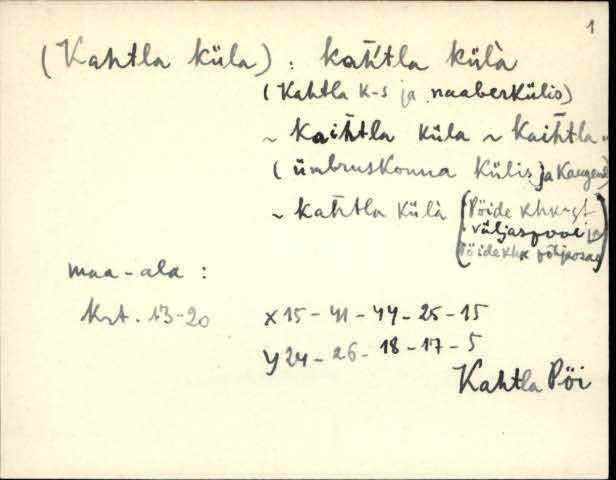 1
(Kahtla küla) : kah̄tla külà
(Kahtla k-s ja naaberkülis)
~ kaih̄tla küla ~ kaih̄tla
(ümbruskonna külis ja kaugem
~ kah̄tla külà (Pöide khk-st
väljaspool ja
Pöide khk põhjaosas)
maa-ala :
Krt. 13-20 X 15 - 41 - 44 - 25 - 15
Y 24 - 26 - 18 - 17 - 5
Kahtla Pöi